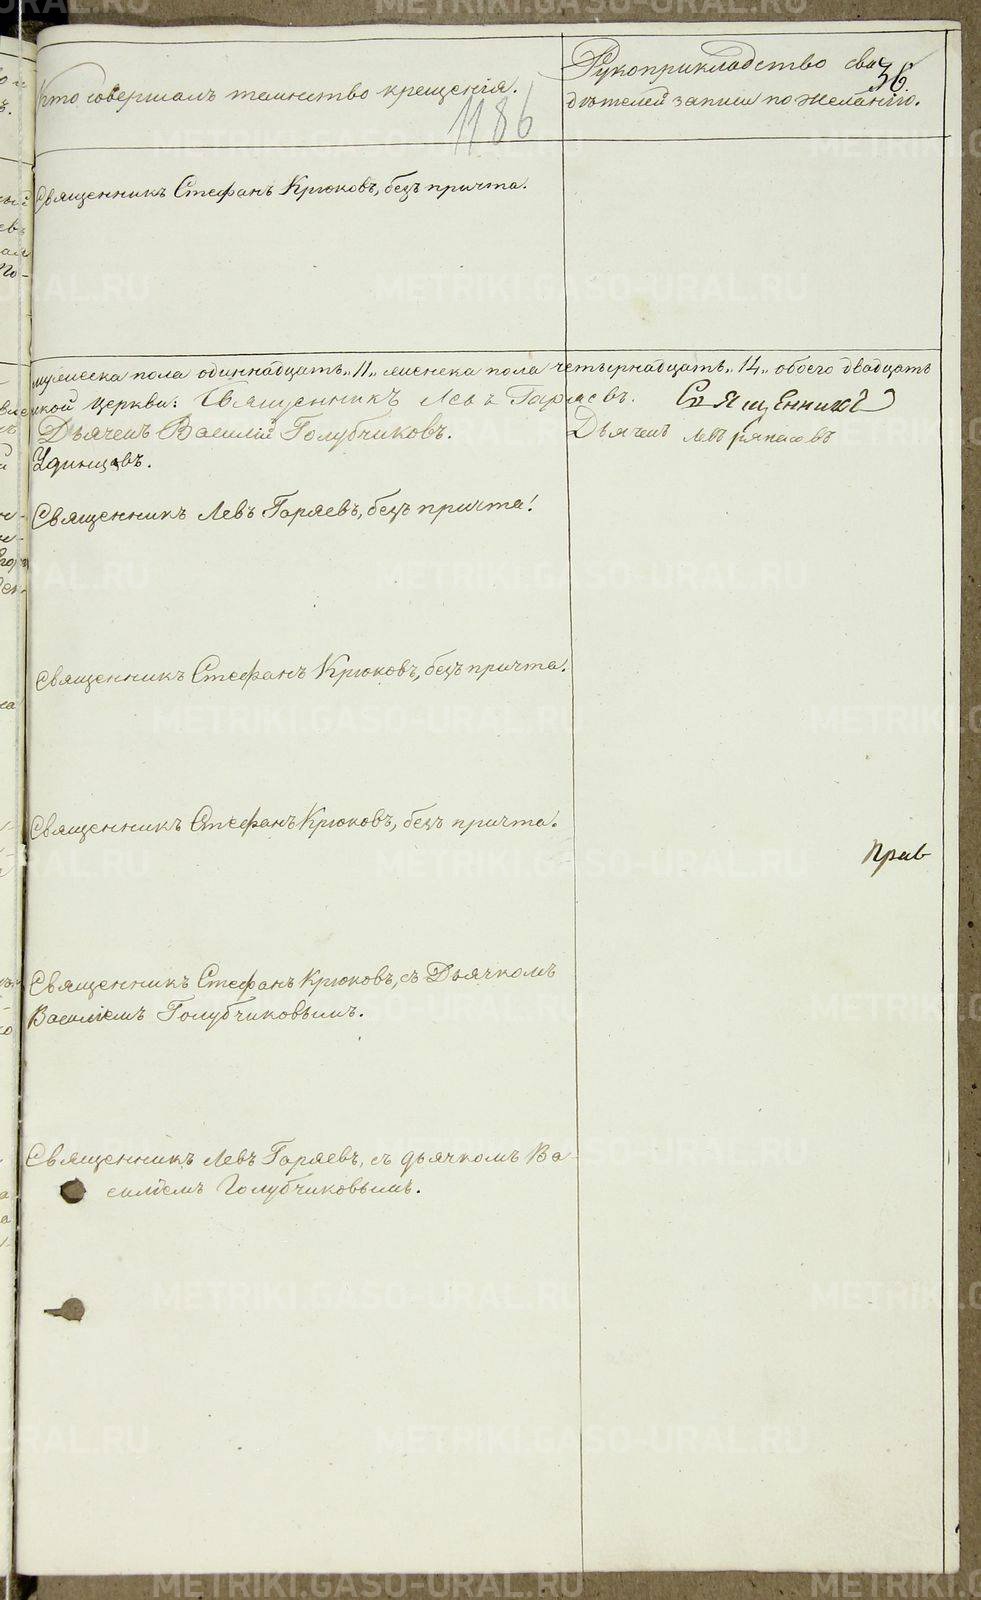 Кто совершалъ таинство крещенія.
Рукоприкладство сви
дѣтелей записи по желанію.
36.
1186
Священникъ Стефанъ Крюковъ, безъ причта.
мужеска пола одиннадцать „11„ женска пола четырнадцать „14„ обоего двадцать
церкви: Священникъ Левъ Гаряевъ. Священникъ
Дьячекъ Василій Голубчиковъ. Дьячекъ
Удинцевъ.
Священникъ Левъ Гаряевъ, безъ причта.
Священникъ Стефанъ Крюковъ, безъ причта.
Священникъ Стефанъ Крюковъ, безъ причта.
Прав
Священникъ Стефанъ Крюковъ, съ Дьячкомъ
Василіемъ Голубчиковымъ.
Священникъ Левъ Гаряевъ, съ дьячкомъ Ва-
силіемъ Голубчиковымъ.
METRIKI.GASO-URAL.RU